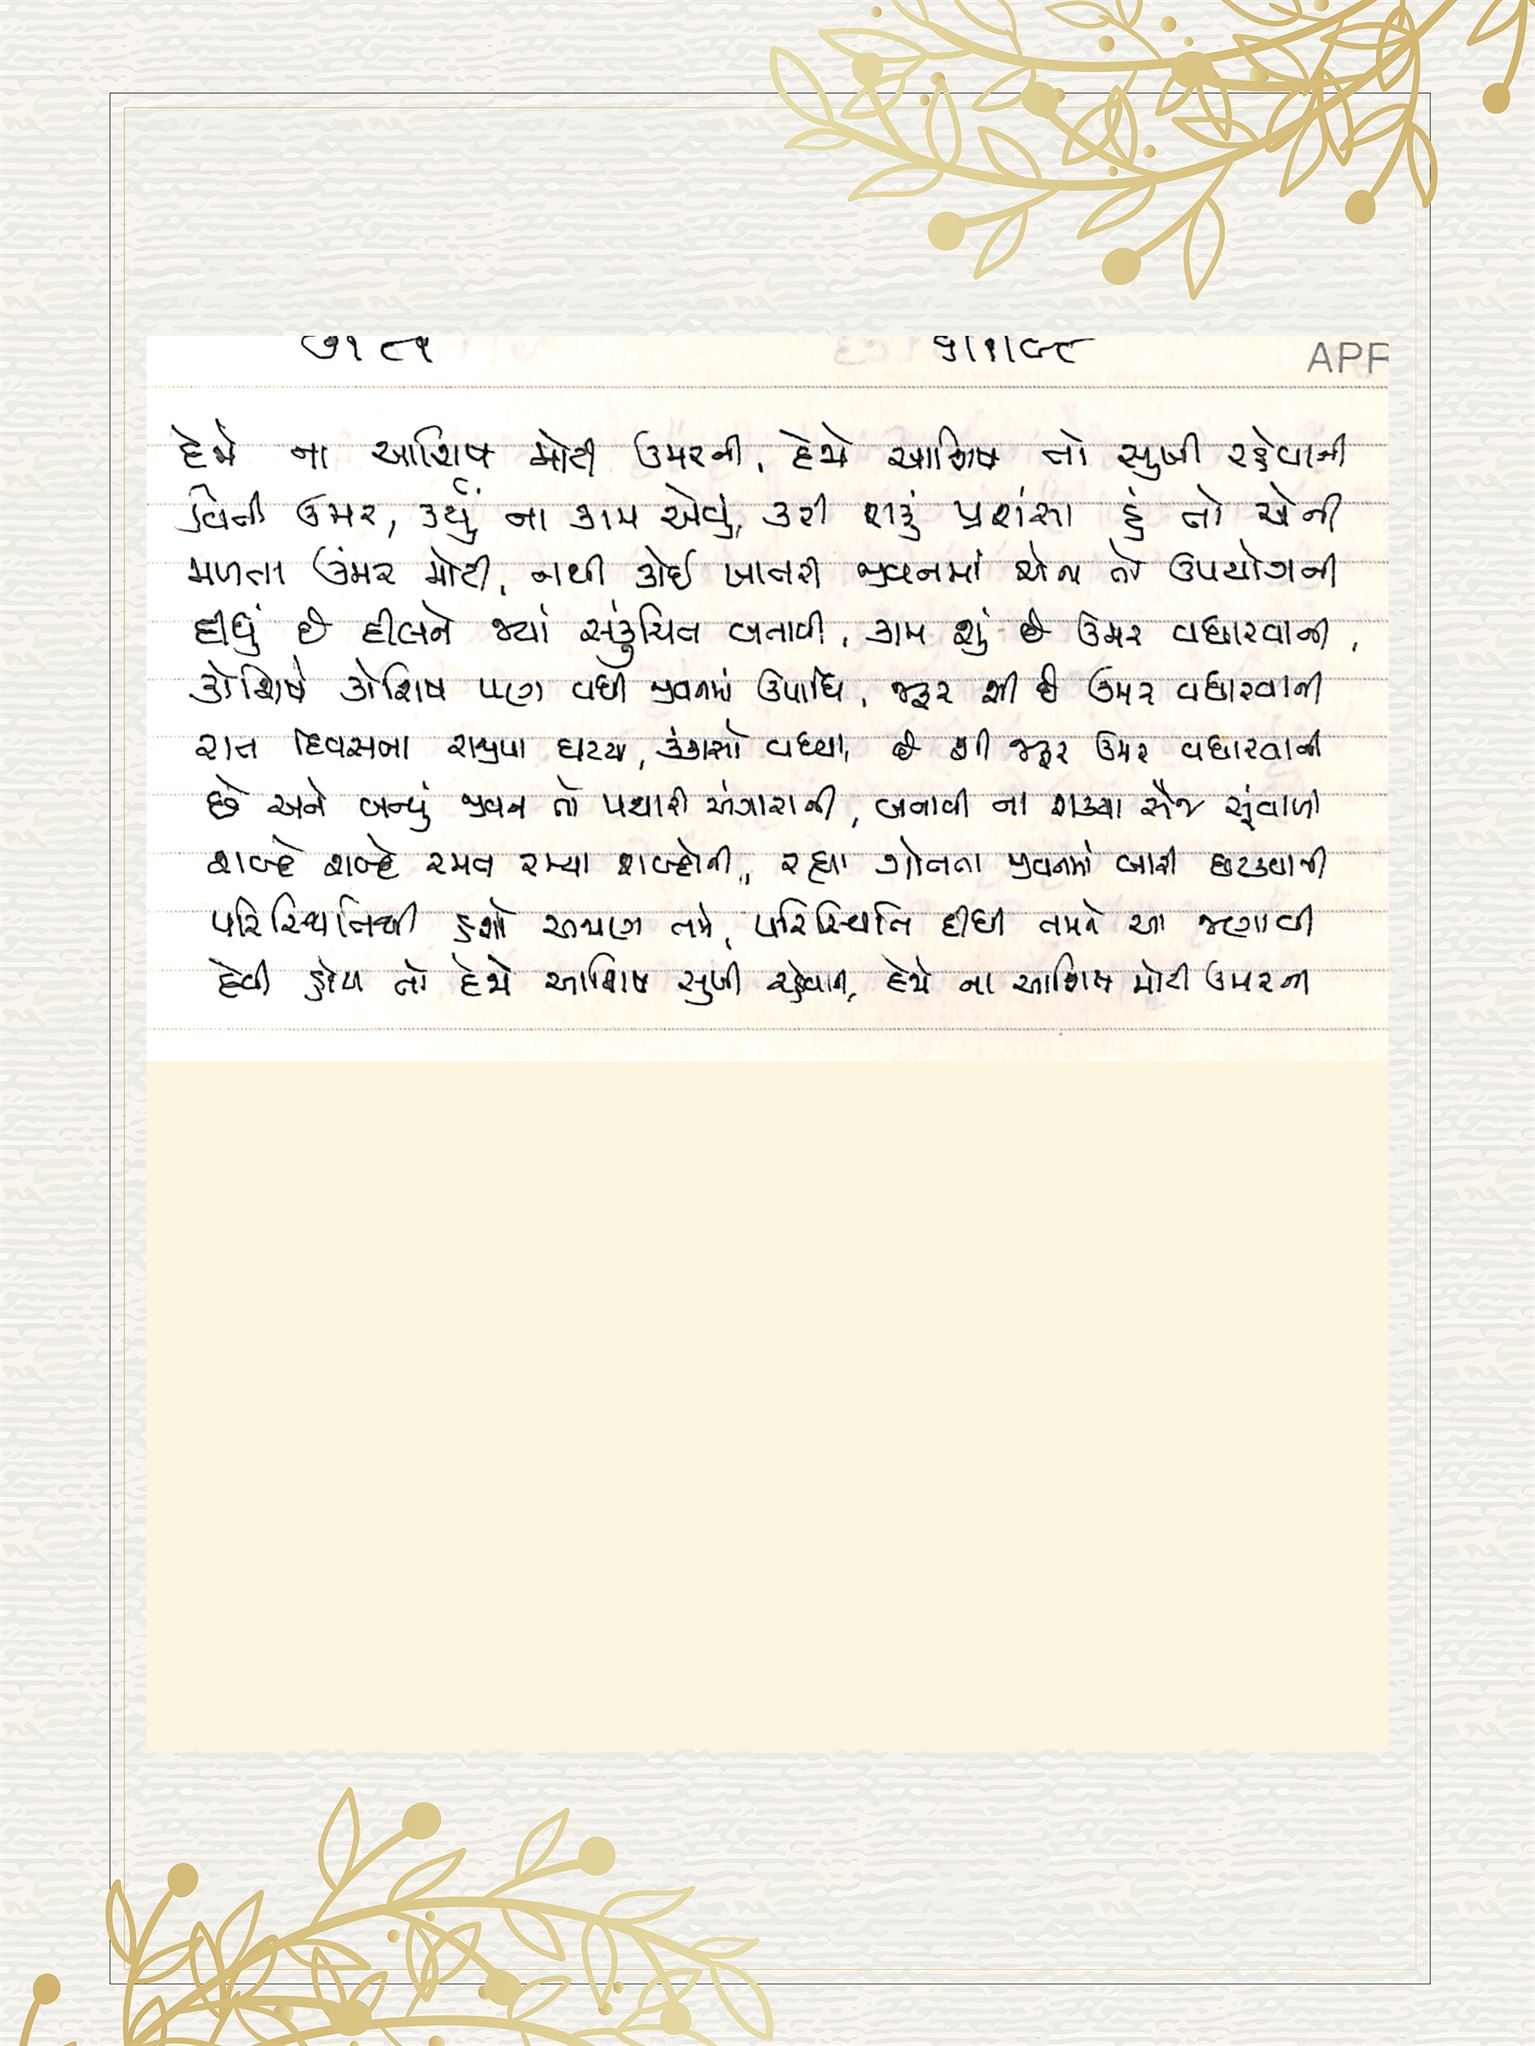 ૭૧૮૧ ૫।૧।૯૮ APF
દેજે ના આશિષ મોટી ઉમરની, દેજે આશિષ તો સુખી રહેવાની
વિતી ઉમર, કર્યું ના કામ એવું, કરી શકું પ્રશંસા હું તો એની
મળતા ઉંમર મોટી, નથી કોઈ ખાતરી જીવનમાં એના તો ઉપયોગની
દીધું છે દીલને જ્યાં સંકુચિત બનાવી, કામ શું છે ઉમર વધારવાની,
કોશિષે કોશિષ પણ વધી જીવનમાં ઉપાધિ, જરૂર શી છે ઉમર વધારવાની
રાત દિવસના રાજીપા ઘટ્યા, કંકાસો વધ્યા, છે શી જરૂર ઉમર વધારવાની
છે અને બન્યું જીવન તો પથારી અંગારાની, બનાવી ના શક્યા સેજ સુંવાળી
શબ્દે શબ્દે રમત રમ્યા શબ્દોની, રહ્યા ગોતતા જીવનમાં બારી છટકવાની
પરિસ્થિતિથી હશો અજાણ તમે, પરિસ્થિતિ દીધી તમને આ જણાવી
દેવી હોય તો દેજે આશિષ સુખી રહેવાની, દેજે ના આશિષ મોટી ઉમરની